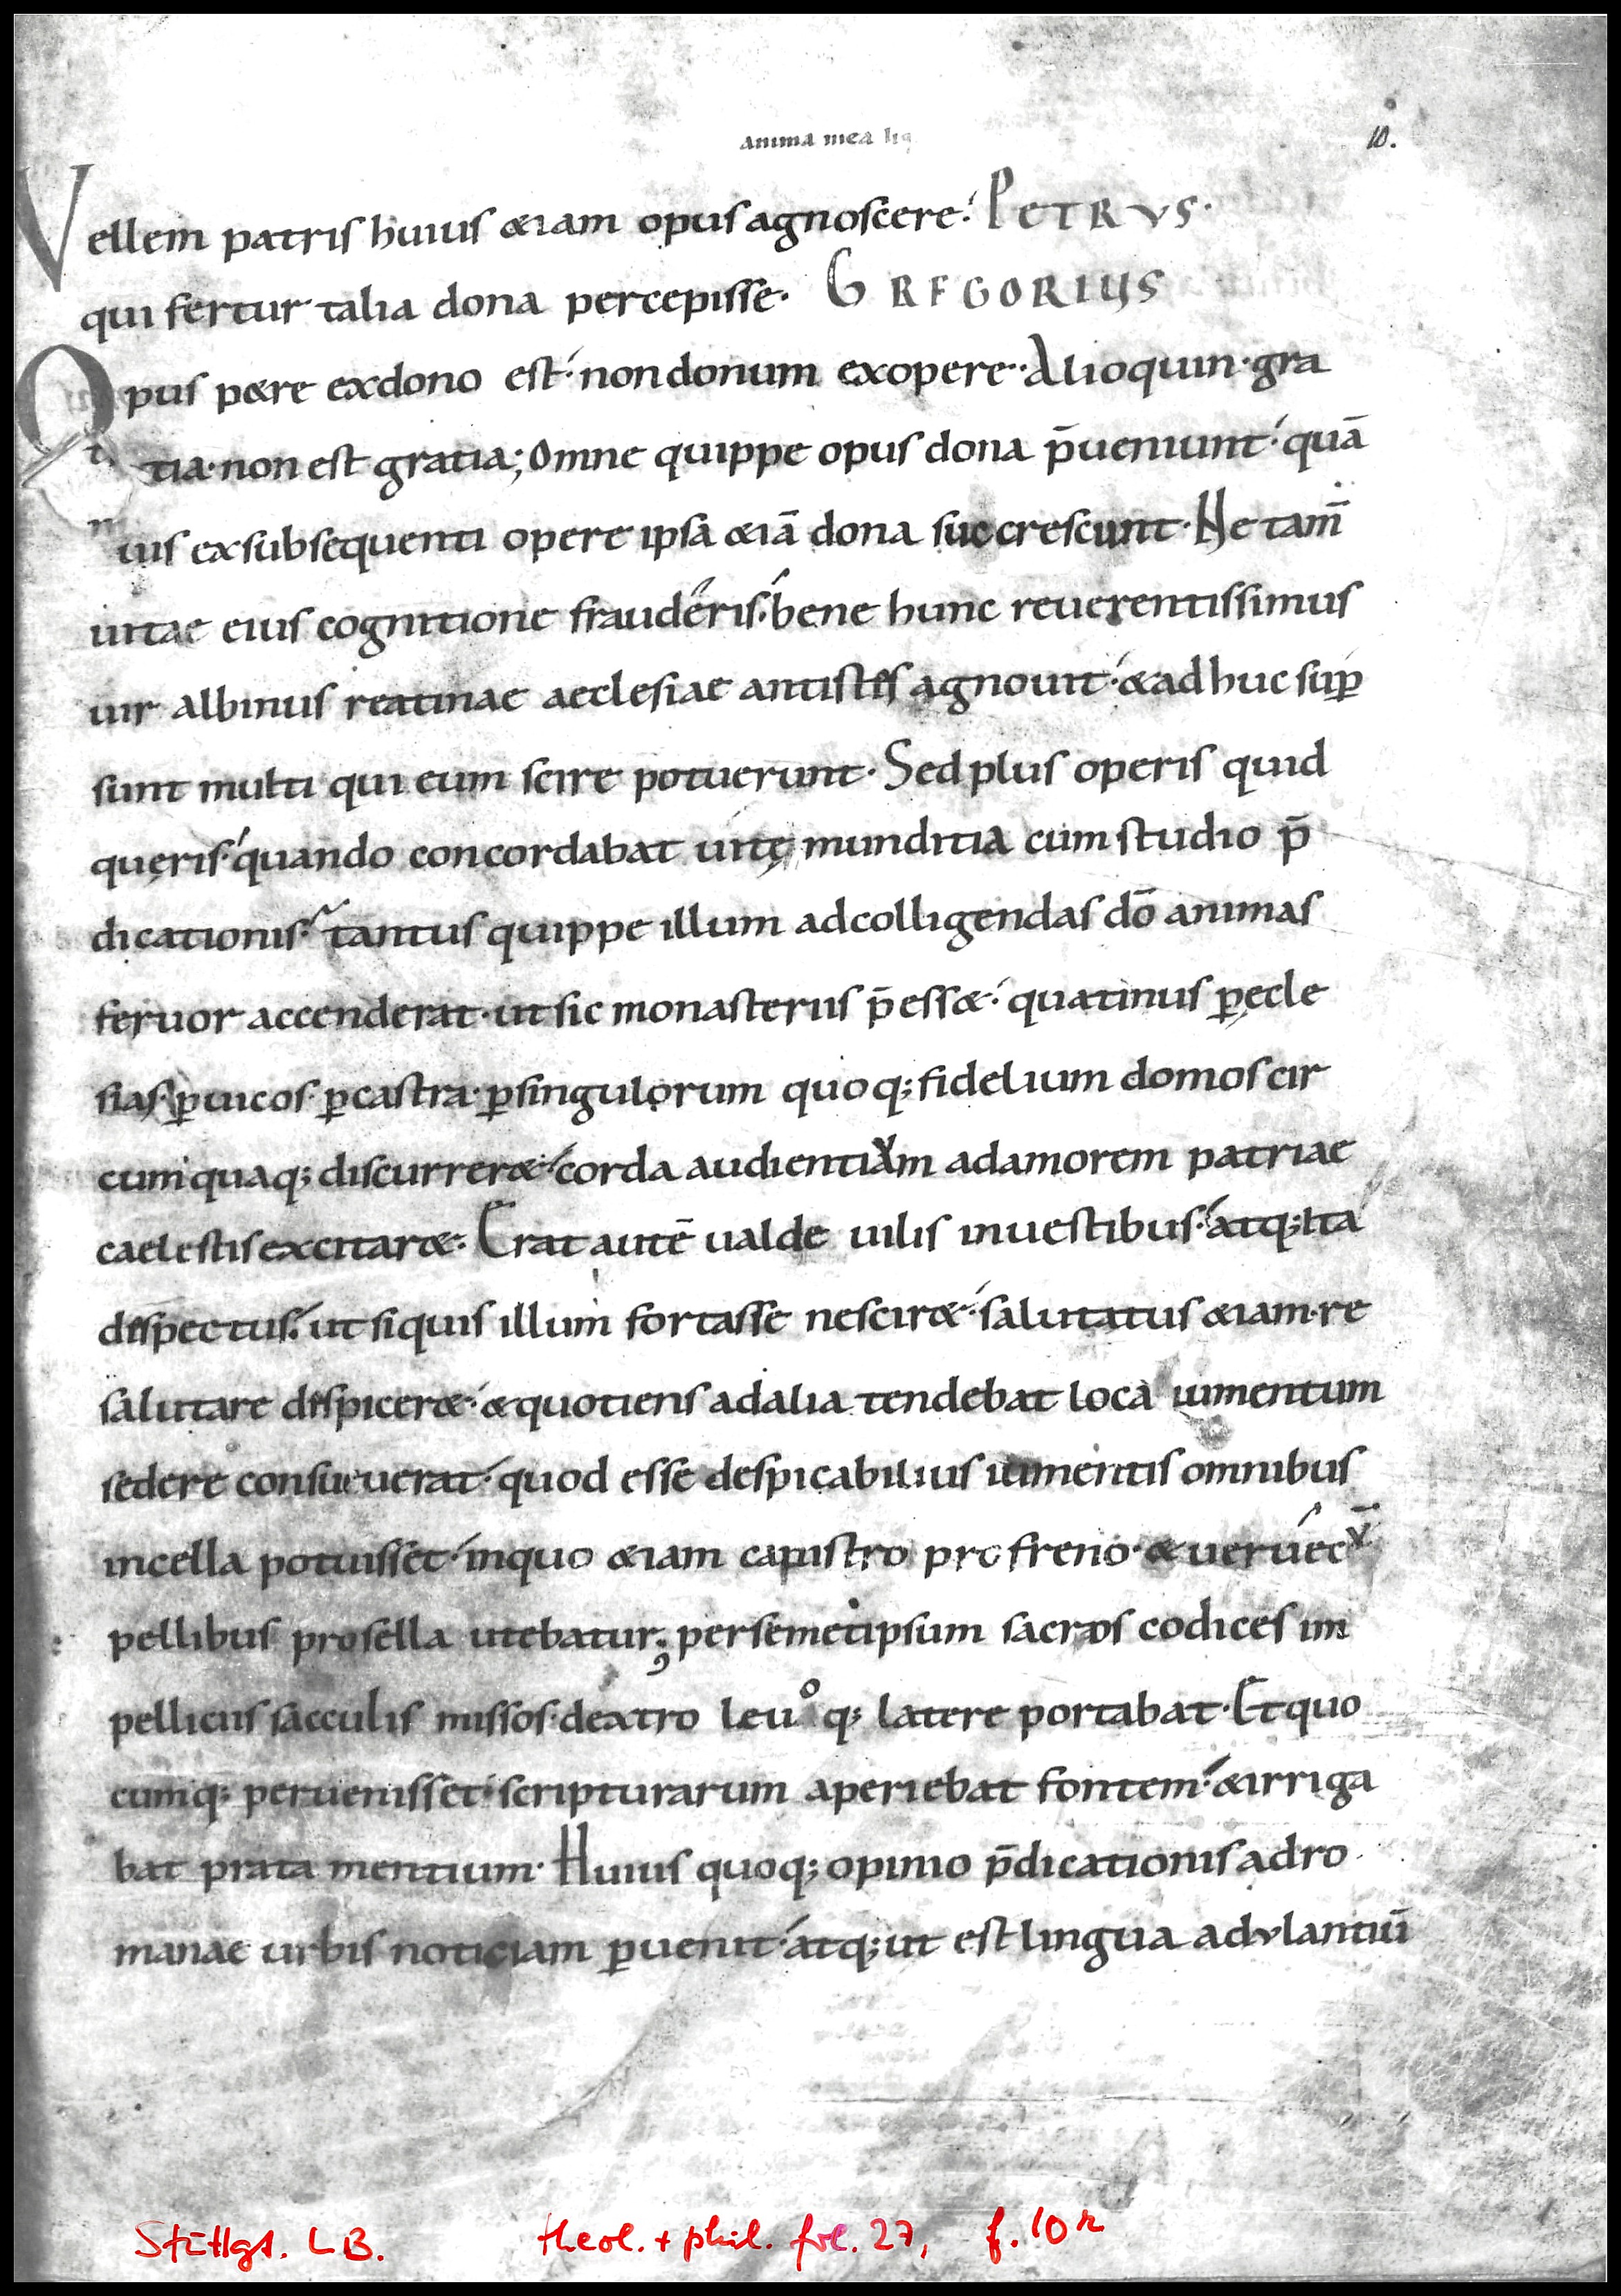 anima mea liq
10.
Vellem patris huius &iam opus agnoscere·́ PETRVS·
qui fertur talia dona percepisse· GREGORIUS
Opus p&re exdono est·́ non donum exopere· Alioquin·gra
tia·non est gratia; Omne quippe opus dona p̄ueniunt·́ quā
uis exsubsequenti opere ipsa &iā dona succrescunt· Ne tam̄
uitae eius cognitione frauderis·́ bene hunc reuerentissimus
uir albinus reatinae aeclesiae antistes agnouit·́ & adhuc suꝑ
sunt multi qui eum scire potuerunt· Sed plus operis quid
quęris·́ quando concordabat uitę munditia cum studio p̄
dicationis· tantus quippe illum adcolligendas dō animas
feruor accenderat· ut sic monasteriis p̄ess&·́ quatinus ꝑ ecle
sias· ꝑ uicos· ꝑ castra· ꝑ singulorum quoq; fidelium domos cir
cumquaq; discurrer&·́ corda audientiVm adamorem patriae
caelestis excitar&· Erat autē ualde uilis inuestibus·́ atq; ita
despectus·́ ut siquis illum fortasse nescir&·́ salutatus &iam·re
salutare despicer&·́ & quotiens adalia tendebat loca iumentum
sedere consueuerat·́ quod esse despicabilius iumentis omnibus
incella potuisset·́ inquo &iam capistro pro freno· & ueruecV̄
pellibus prosella utebatur; persemetipsum sacros codices in
pelliciis sacculis missos· dextro leuoq; latere portabat· Et quo
cumq; peruenisset·́ scripturarum aperiebat fontem·́ & irriga
bat prata mentium· Huius quoq; opinio p̄dicationis adro
manae urbis noticiam ꝑuenit·́ atq; ut est lingua advlantiū
Stuttgt. LB. theol. + phil. fol. 27, f. 10r